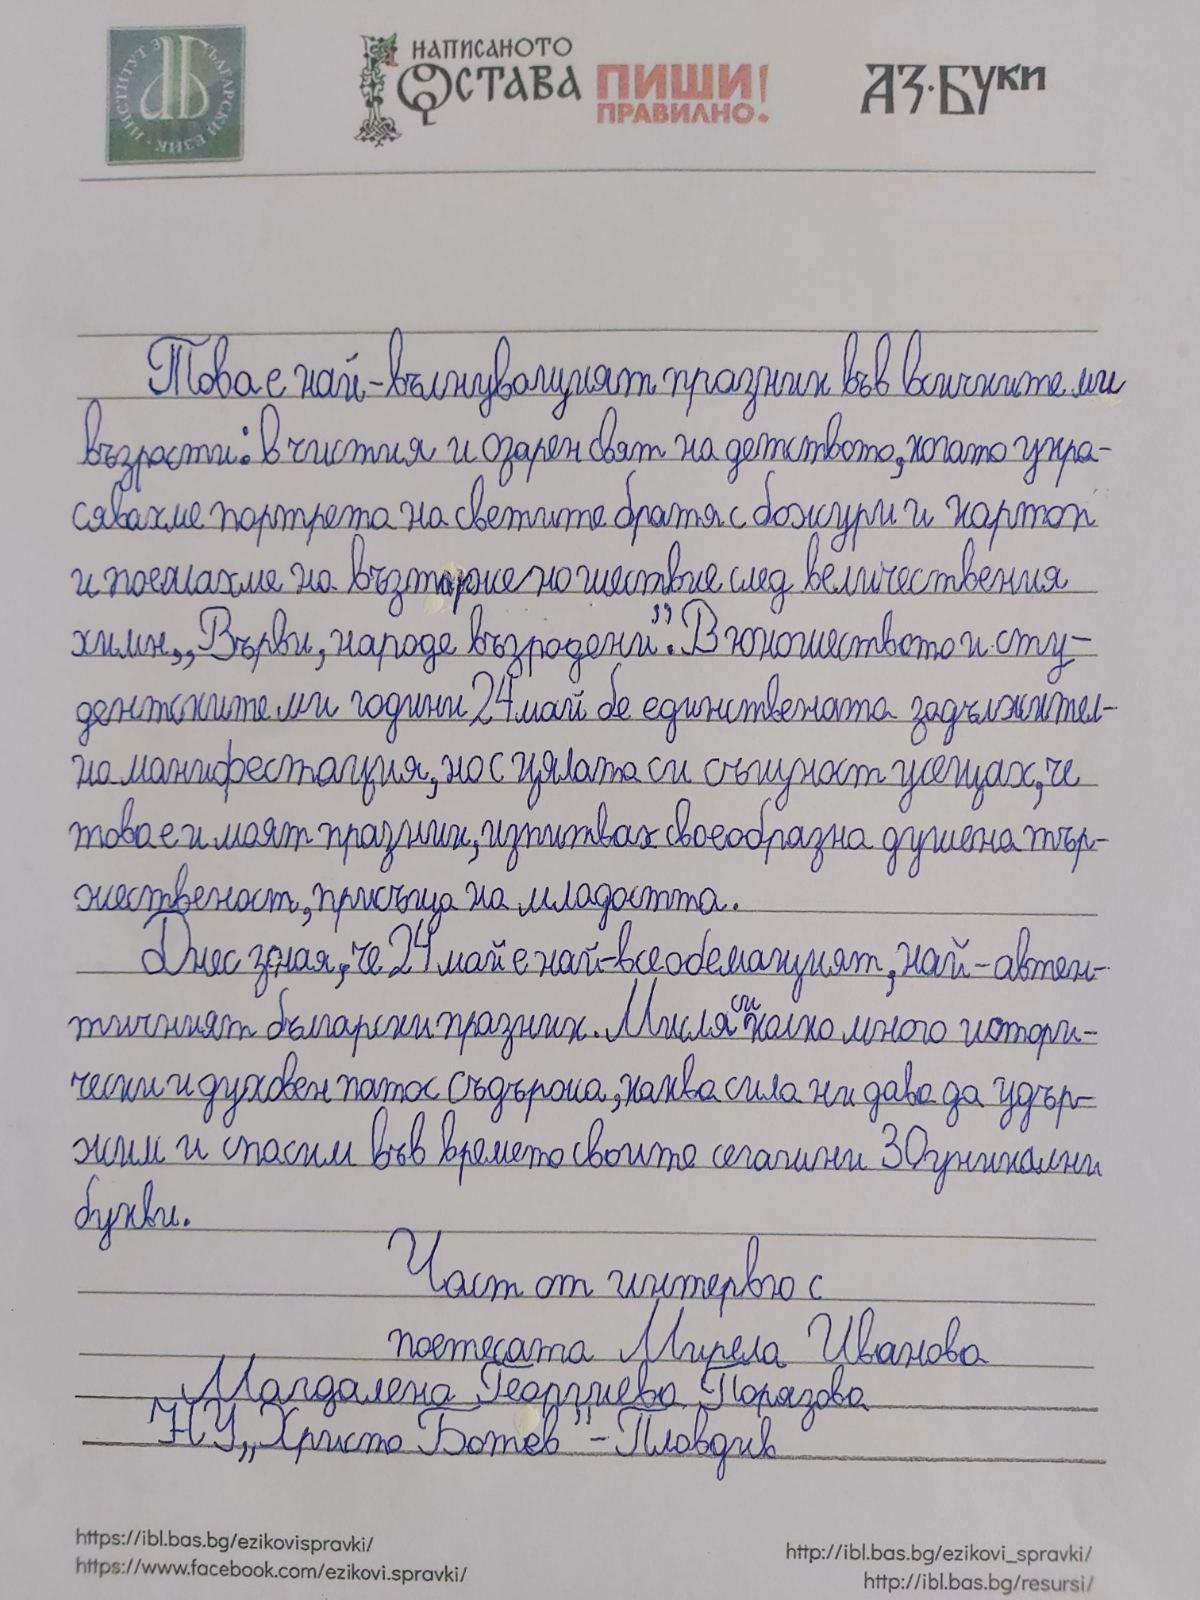 ИНСТИТУТ ЗА БЪЛГАРСКИ ЕЗИК
НАПИСАНОТО
ОСТАВА
ПИШИ
ПРАВИЛНО!
АЗ·БУКИ
Това е най-вълнуващият празник във всичките ми
възрасти: в чистия и озарен свят на детството, когато укра-
сявахме портрета на светите братя с божури и картон
и поемахме на възторжено шествие след величествения
химн „Върви, народе възродени". В юношеството и сту-
дентските ми години 24 май бе единствената задължител-
на манифестация, но с цялата си същност усещах, че
това е и моят празник, изпитвах своеобразна душевна тър-
жественост, присъща на младостта.
Днес зная, че 24 май е най-всеобемащият, най-автен-
тичният български празник. Мисля си колко много истори-
чески и духовен патос съдържа, каква сила ни дава да удър-
жим и спасим във времето своите сегашни 30 уникални
букви.
Част от интервю с
поетесата Мирела Иванова
Магдалена Георгиева Порязова
НУ „Христо Ботев" - Пловдив
https://ibl.bas.bg/ezikovispravki/
https://www.facebook.com/ezikovi.spravki/
http://ibl.bas.bg/ezikovi_spravki/
http://ibl.bas.bg/resursi/